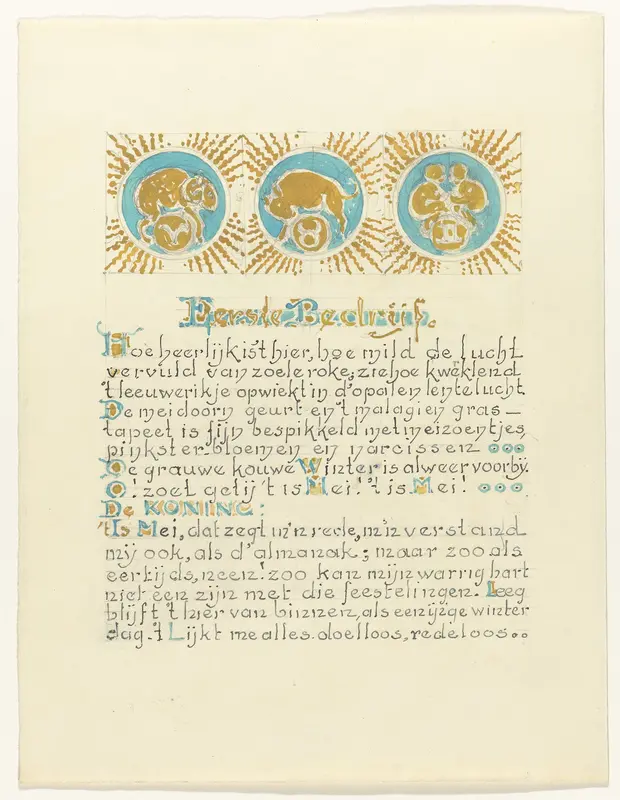 Eerste Bedrijf.
Hoe heerlijk is't hier, hoe mild de lucht
vervuld van zoele roke; zie hoe kwêklend
't leeuwerikje opwiekt in d'opalen lentelucht.
De meidoorn geurt en 't malagien gras—
tapeet is fijn bespikkeld met meizoentjes,
pinkster-bloemen en narcissen
De grauwe kouwe Winter is alweer voorbij.
O! zoet getij 't is Mei! 't is Mei!
De KONING:
't Is Mei, dat zegt m'n rede, m'n verstand
mij ook, als d'almanak; maar zoo als
eertijds, neen! zoo kan mijn warrig hart
niet een zijn met die feestelingen. Leeg
blijft 't hier van binnen, als een ijzige winter
dag. 't Lijkt me alles doelloos, redeloos..